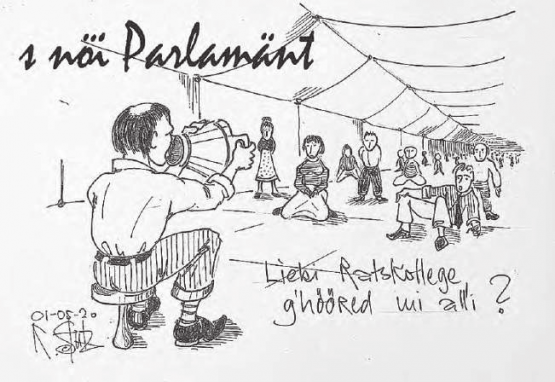 s nöi Parlamänt
Liebi Ratskollege
g'hööred mi alli ?
01-05-20